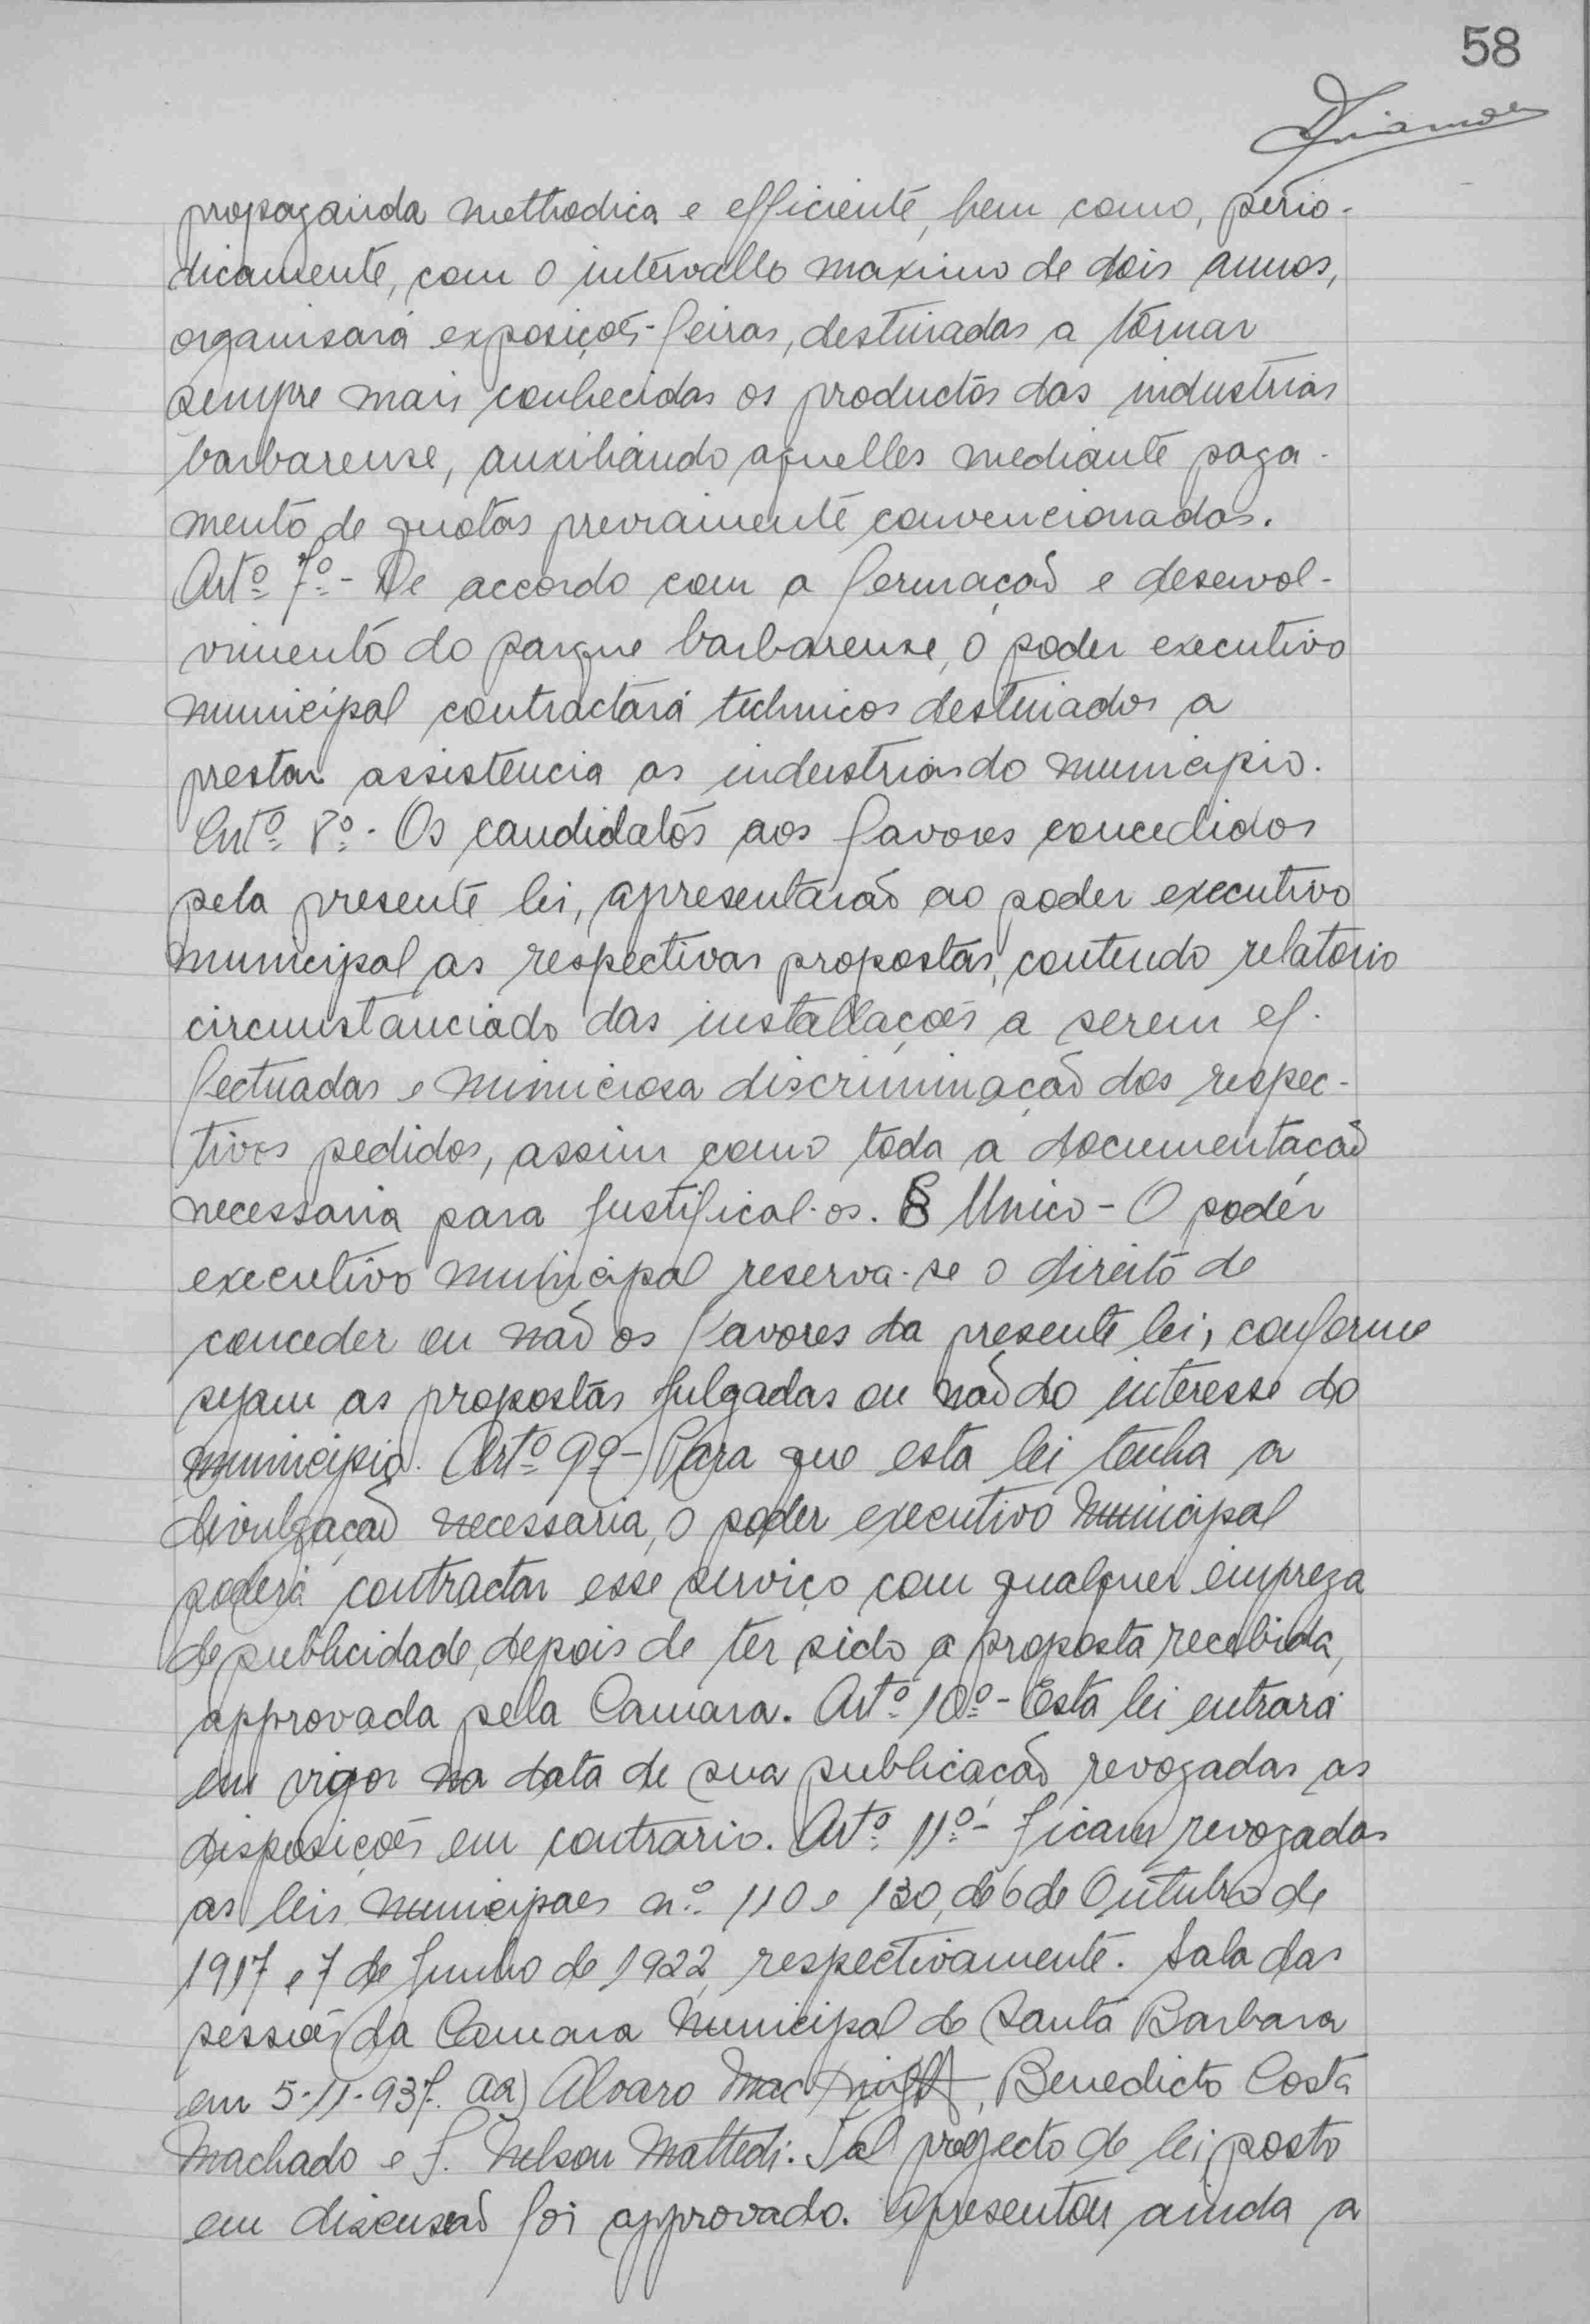 58
propaganda methodica e efficiente, bem como, perio-
dicamente, com o intervallo maximo de dois annos,
organisará exposições-feiras, destinadas a tornar
sempre mais conhecidas os productos das industrias
barbarense, auxiliando aquelles mediante paga-
mento de quotas previamente convencionadas.
Artº 7º - De accordo com a formação e desenvol-
vimento do parque barbarense, o poder executivo
municipal contractará technicos destinados a
prestar assistencia as industrias do municipio.
Artº 8º - Os candidatos aos favores concedidos
pela presente lei, apresentarão ao poder executivo
municipal as respectivas propostas, contendo relatorio
circumstanciado das installações a serem ef-
fectuadas e miniciosa discriminação dos respec-
tivos pedidos, assim como toda a documentacão
necessaria para justifical-os. § Unico - O poder
executivo municipal reserva-se o direito de
conceder ou não os favores da presente lei, conforme
sejam as propostas julgadas ou não do interesse do
municipio. Artº 9º - Para que esta lei tenha a
divulgação necessaria, o poder executivo municipal
poderá contractar esse serviço com qualquer empreza
de publicidade, depois de ter sido a proposta recebida,
approvada pela Camara. Artº 10º - Esta lei entrará
em vigor na data de sua publicação revogadas as
disposições em contrario. Artº 11º - Ficam revogadas
as leis municipaes nº 110 e 130, de 6 de Outubro de
1917 e 7 de Junho de 1922, respectivamente. Sala das
sessões da Camara Municipal de Santa Barbara
em 5-11-937. aa) Alvaro Mac , Benedicto Costa
Machado e J. Nelson Mattedi. Tal projecto de lei posto
em discussão foi approvado. Apresentou ainda a